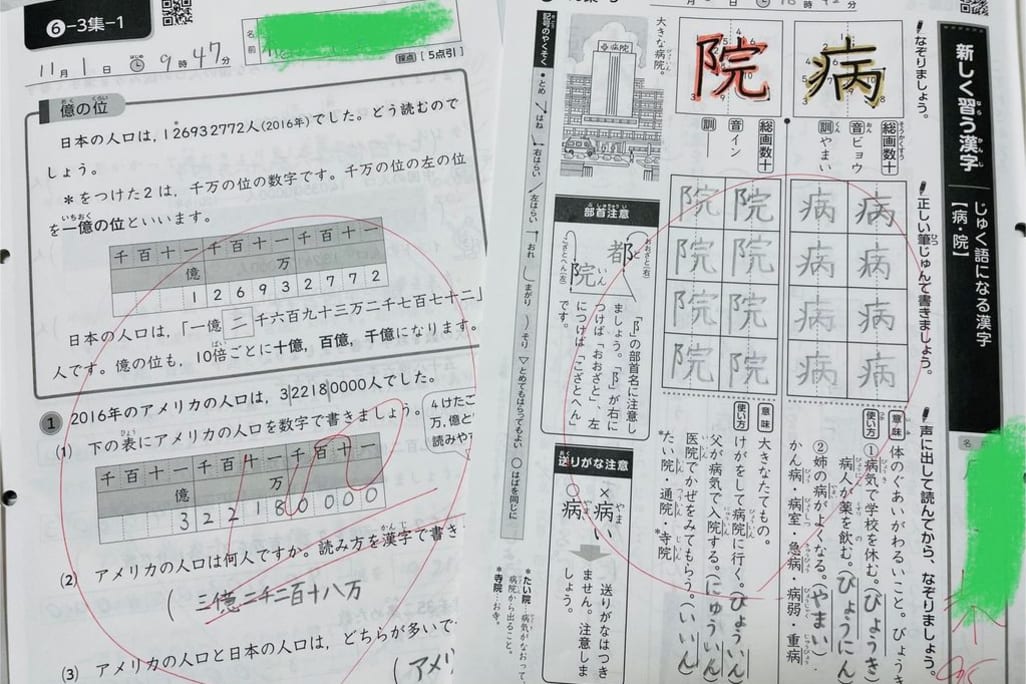 ❻-3集-1
名前
11月1日 9時47分
採点 [5点引]
億の位
日本の人口は，126932772人(2016年)でした。どう読むので
しょう。
＊をつけた2は，千万の位の数字です。千万の位の左の位
を一億の位といいます。
千百十一千百十一千百十一
億 万
1 2 6 9 3 2 7 7 2
日本の人口は，「一億二千六百九十三万二千七百七十二」
人です。億の位も，10倍ごとに十億，百億，千億になります。
① 2016年のアメリカの人口は，322180000人でした。
(1) 下の表にアメリカの人口を数字で書きましょう。
4けたご
万，億と
読みや
千百十一千百十一千百十一
億 万
3 2 2 1 8 0 0 0 0
100
(2) アメリカの人口は何人ですか。読み方を漢字で書き
(三億二千二百十八万
(3) アメリカの人口と日本の人口は，どちらが多いで
(アメリ
新しく習う漢字
じゅく語になる漢字
【病・院】
なぞりましょう。
病
総画数十
音ビョウ
訓やまい
院
総画数十
音イン
訓―
大きな病院。
病院
正しい筆じゅんで書きましょう。
病 病
病 病
病 病
病 病
院 院
院 院
院 院
院 院
声に出して読んでから、なぞりましょう。
意味 体のぐあいがわるいこと。びょうき
使い方 ①病気で学校を休む。(びょうき)
病人が薬を飲む。(びょうにん)
②姉の病がよくなる。(やまい)
かん病・病室・急病・病弱・重病
意味 大きなたてもの。
使い方 けがをして病院に行く。(びょういん)
父が病気で入院する。(にゅういん)
医院でかぜをみてもらう。(いいん)
＊たい院・通院・＊寺院
＊たい院…病気がなおって、
病院から出ること。
＊寺院…お寺。
部首注意
都 おおざと(右)
院 こざとへん(左)
「阝」の部首名に注意し
ましょう。「阝」が右に
つけば「おおざと」、左
につけば「こざとへん」
です。
送りがな注意
×病い
○病
送りがなはつき
ません。注意しま
しょう。
記号のやくそく
・とめ はね 右はらい 左はらい おれ まがり そり ▽とめてもはらってもよい ○はばを同じに